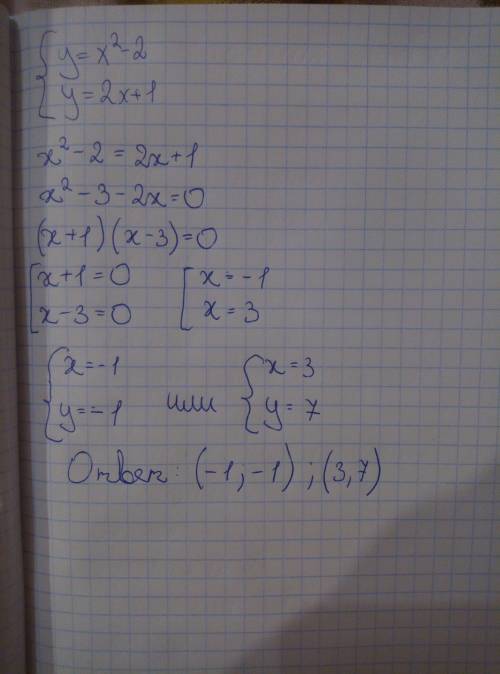 y = x² - 2
y = 2x + 1
x² - 2 = 2x + 1
x² - 3 - 2x = 0
(x + 1)(x - 3) = 0
x + 1 = 0 x = -1
x - 3 = 0 x = 3
x = -1 x = 3
y = -1 или y = 7
Ответ: (-1, -1); (3, 7)